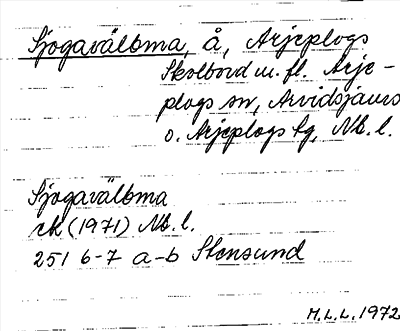 Sjogavälbma, å, Arjeplogs
Skolbord m. fl. Arje-
plogs sn, Arvidsjaurs
o. Arjeplogs tg, Nb. l.
Sjogavälbma
rk (1971) Nb. l.
251 6-7 a-b Stensund
M.L.L. 1972